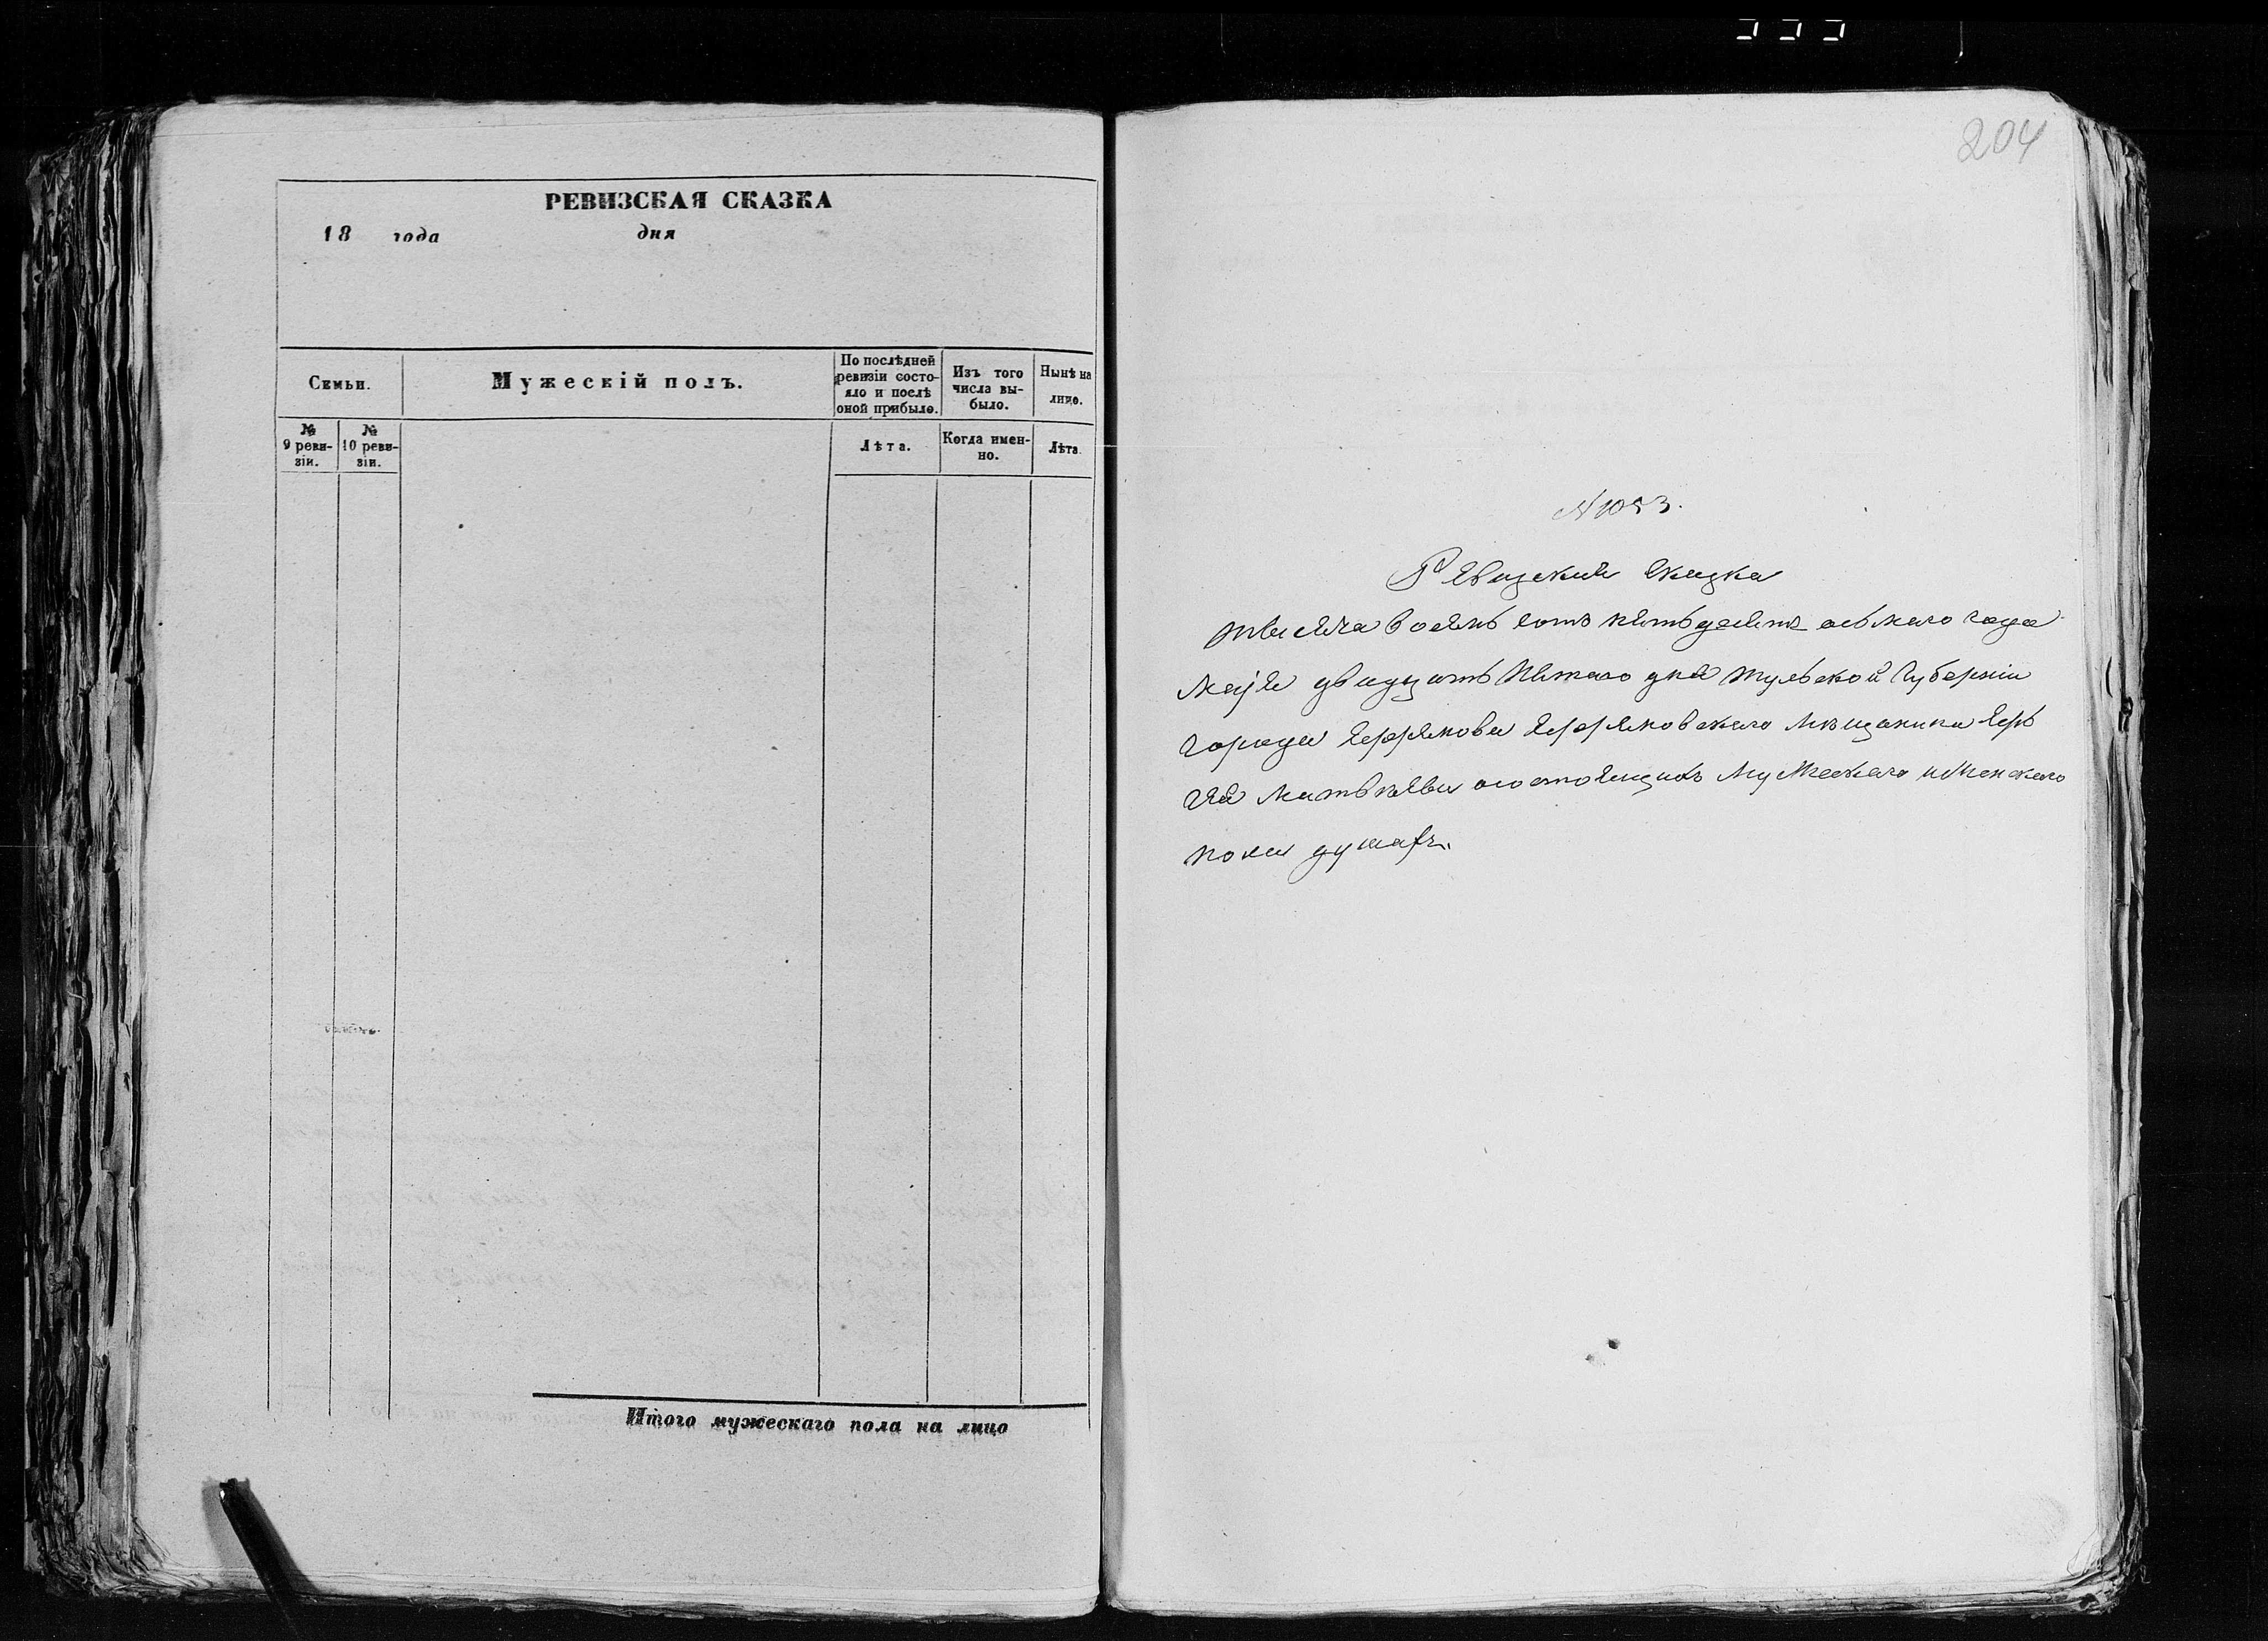 РЕВИЗСКАЯ СКАЗКА
18 года дня
Семьи.
Мужескій полъ.
По послѣдней
ревизіи состо-
яло и послѣ
оной прибыло.
Изъ того
числа вы-
было.
Нынѣ на
лицо.
№
9 реви-
зіи.
№
10 реви-
зіи.
Лѣта.
Когда имен-
но.
Лѣта
Итого мужескаго пола на лицо
204
№ 1053.
Ревизская Сказка
тысяча восемь сотъ пятьдесятъ осьмаго года
маія двадцать пятаго дня Тульской Губерніи
города Ефремова Ефремовскаго мѣщанина Сер
гѣя Матвѣева состоящихъ мужескаго и женскаго
пола душахъ.